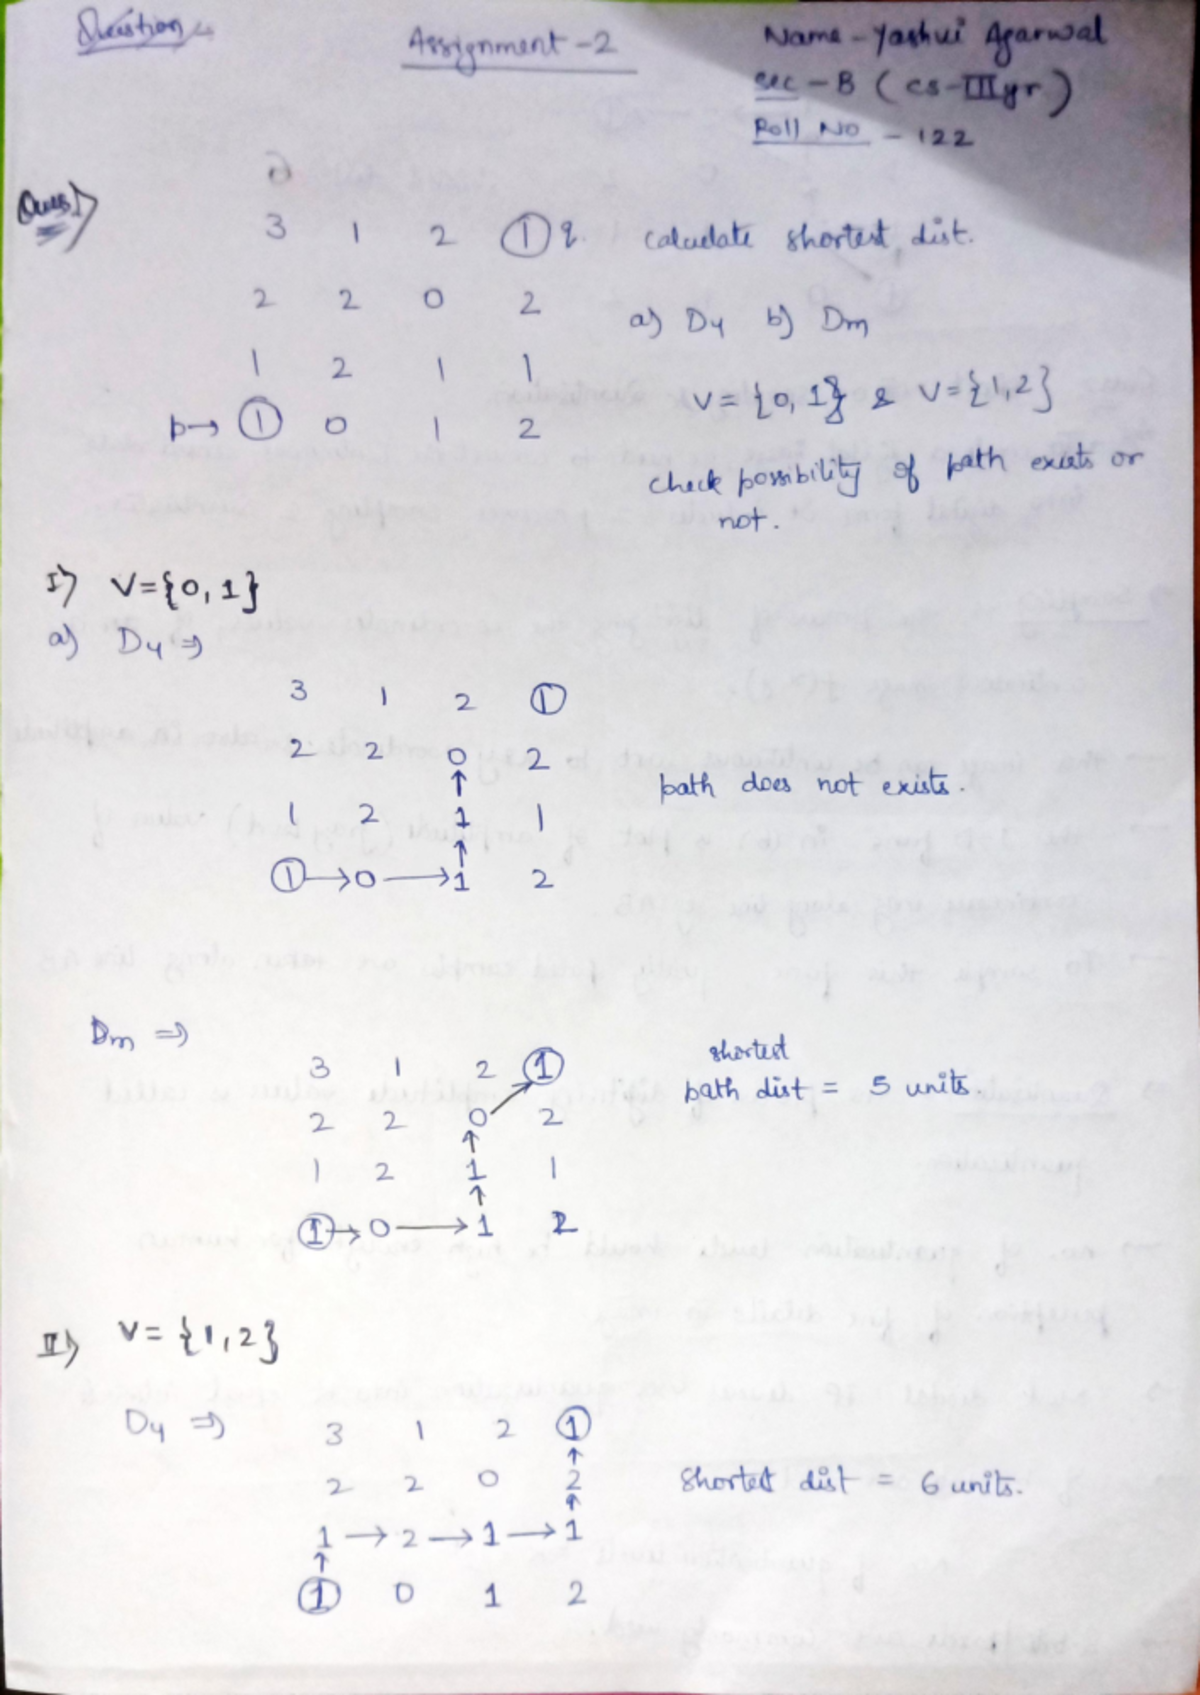 Question :-
Assignment - 2
Name - Yashvi Agarwal
Sec - B ( CS - III yr )
Roll No - 122
Ques 1)
3 1 2 1 q.
2 2 0 2
1 2 1 1
p→ 1 0 1 2
calculate shortest dist.
a) D4 b) Dm
V = {0, 1} & V = {1, 2}
check possibility of path exists or
not.
I) V = {0, 1}
a) D4 ⇒
3 1 2 1
2 2 0 2
↑
1 2 1 1
↑
1 → 0 → 1 2
path does not exists.
Dm ⇒
3 1 2 1
2 2 0 2
↑
1 2 1 1
↑
1 → 0 → 1 2
shortest
path dist = 5 units
II) V = {1, 2}
D4 ⇒
3 1 2 1
↑
2 2 0 2
↑
1 → 2 → 1 → 1
↑
1 0 1 2
Shortest dist = 6 units.